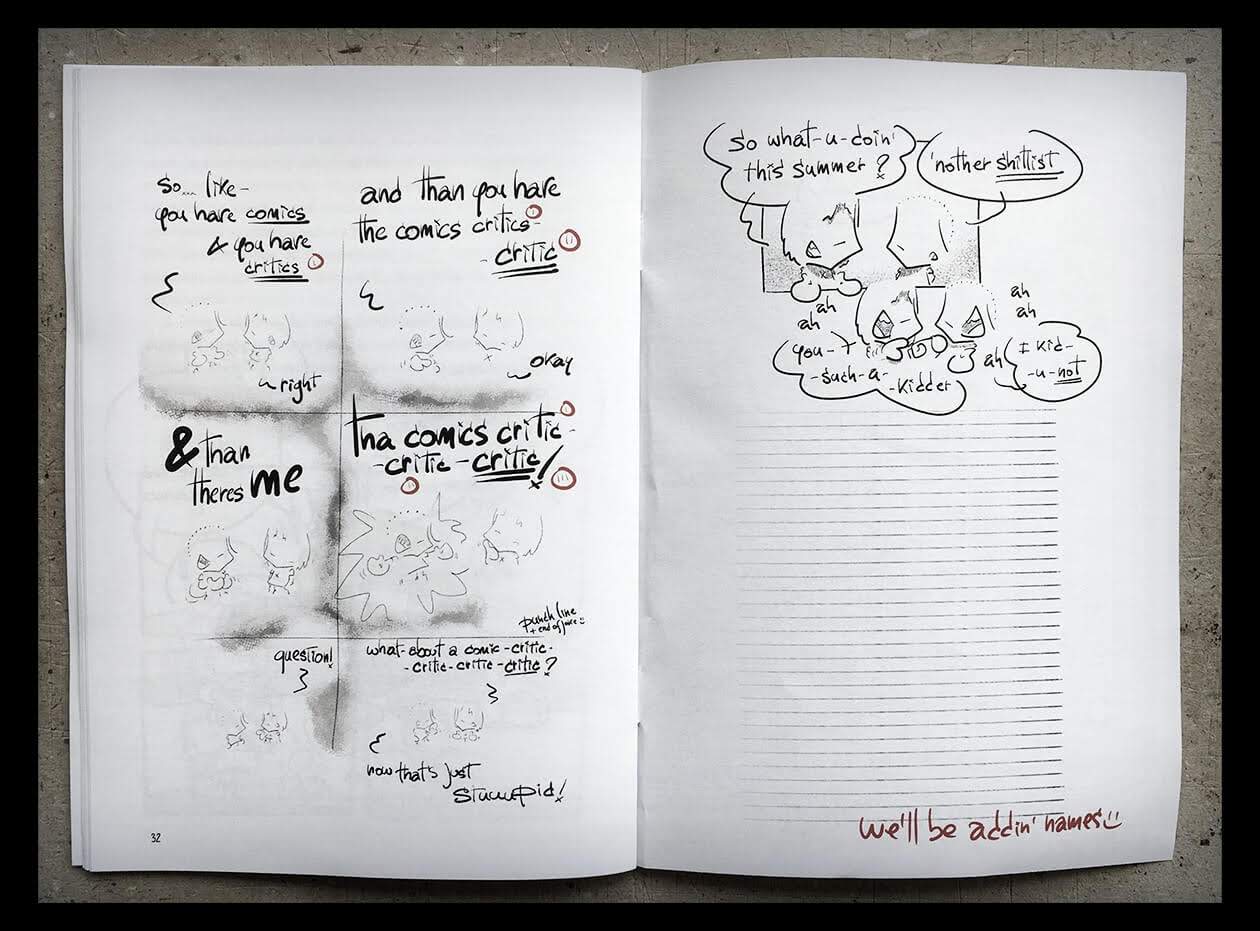 So... like -
you have comics
& you have
critics
right
and than you have
the comics critics -
- critic
okay
& than
theres me
tha comics critic -
- critic - critic!
punch line
+ end of juice
question!
what-about a comic-critic-
-critic-critic-critic?
now that's just
stuuupid!
32
So what-u-doin'
this summer?
'nother shitlist
ah
ah
you-r
-such-a-
-kidder
ah
ah
ah
I kid-
-u-not
we'll be addin' names